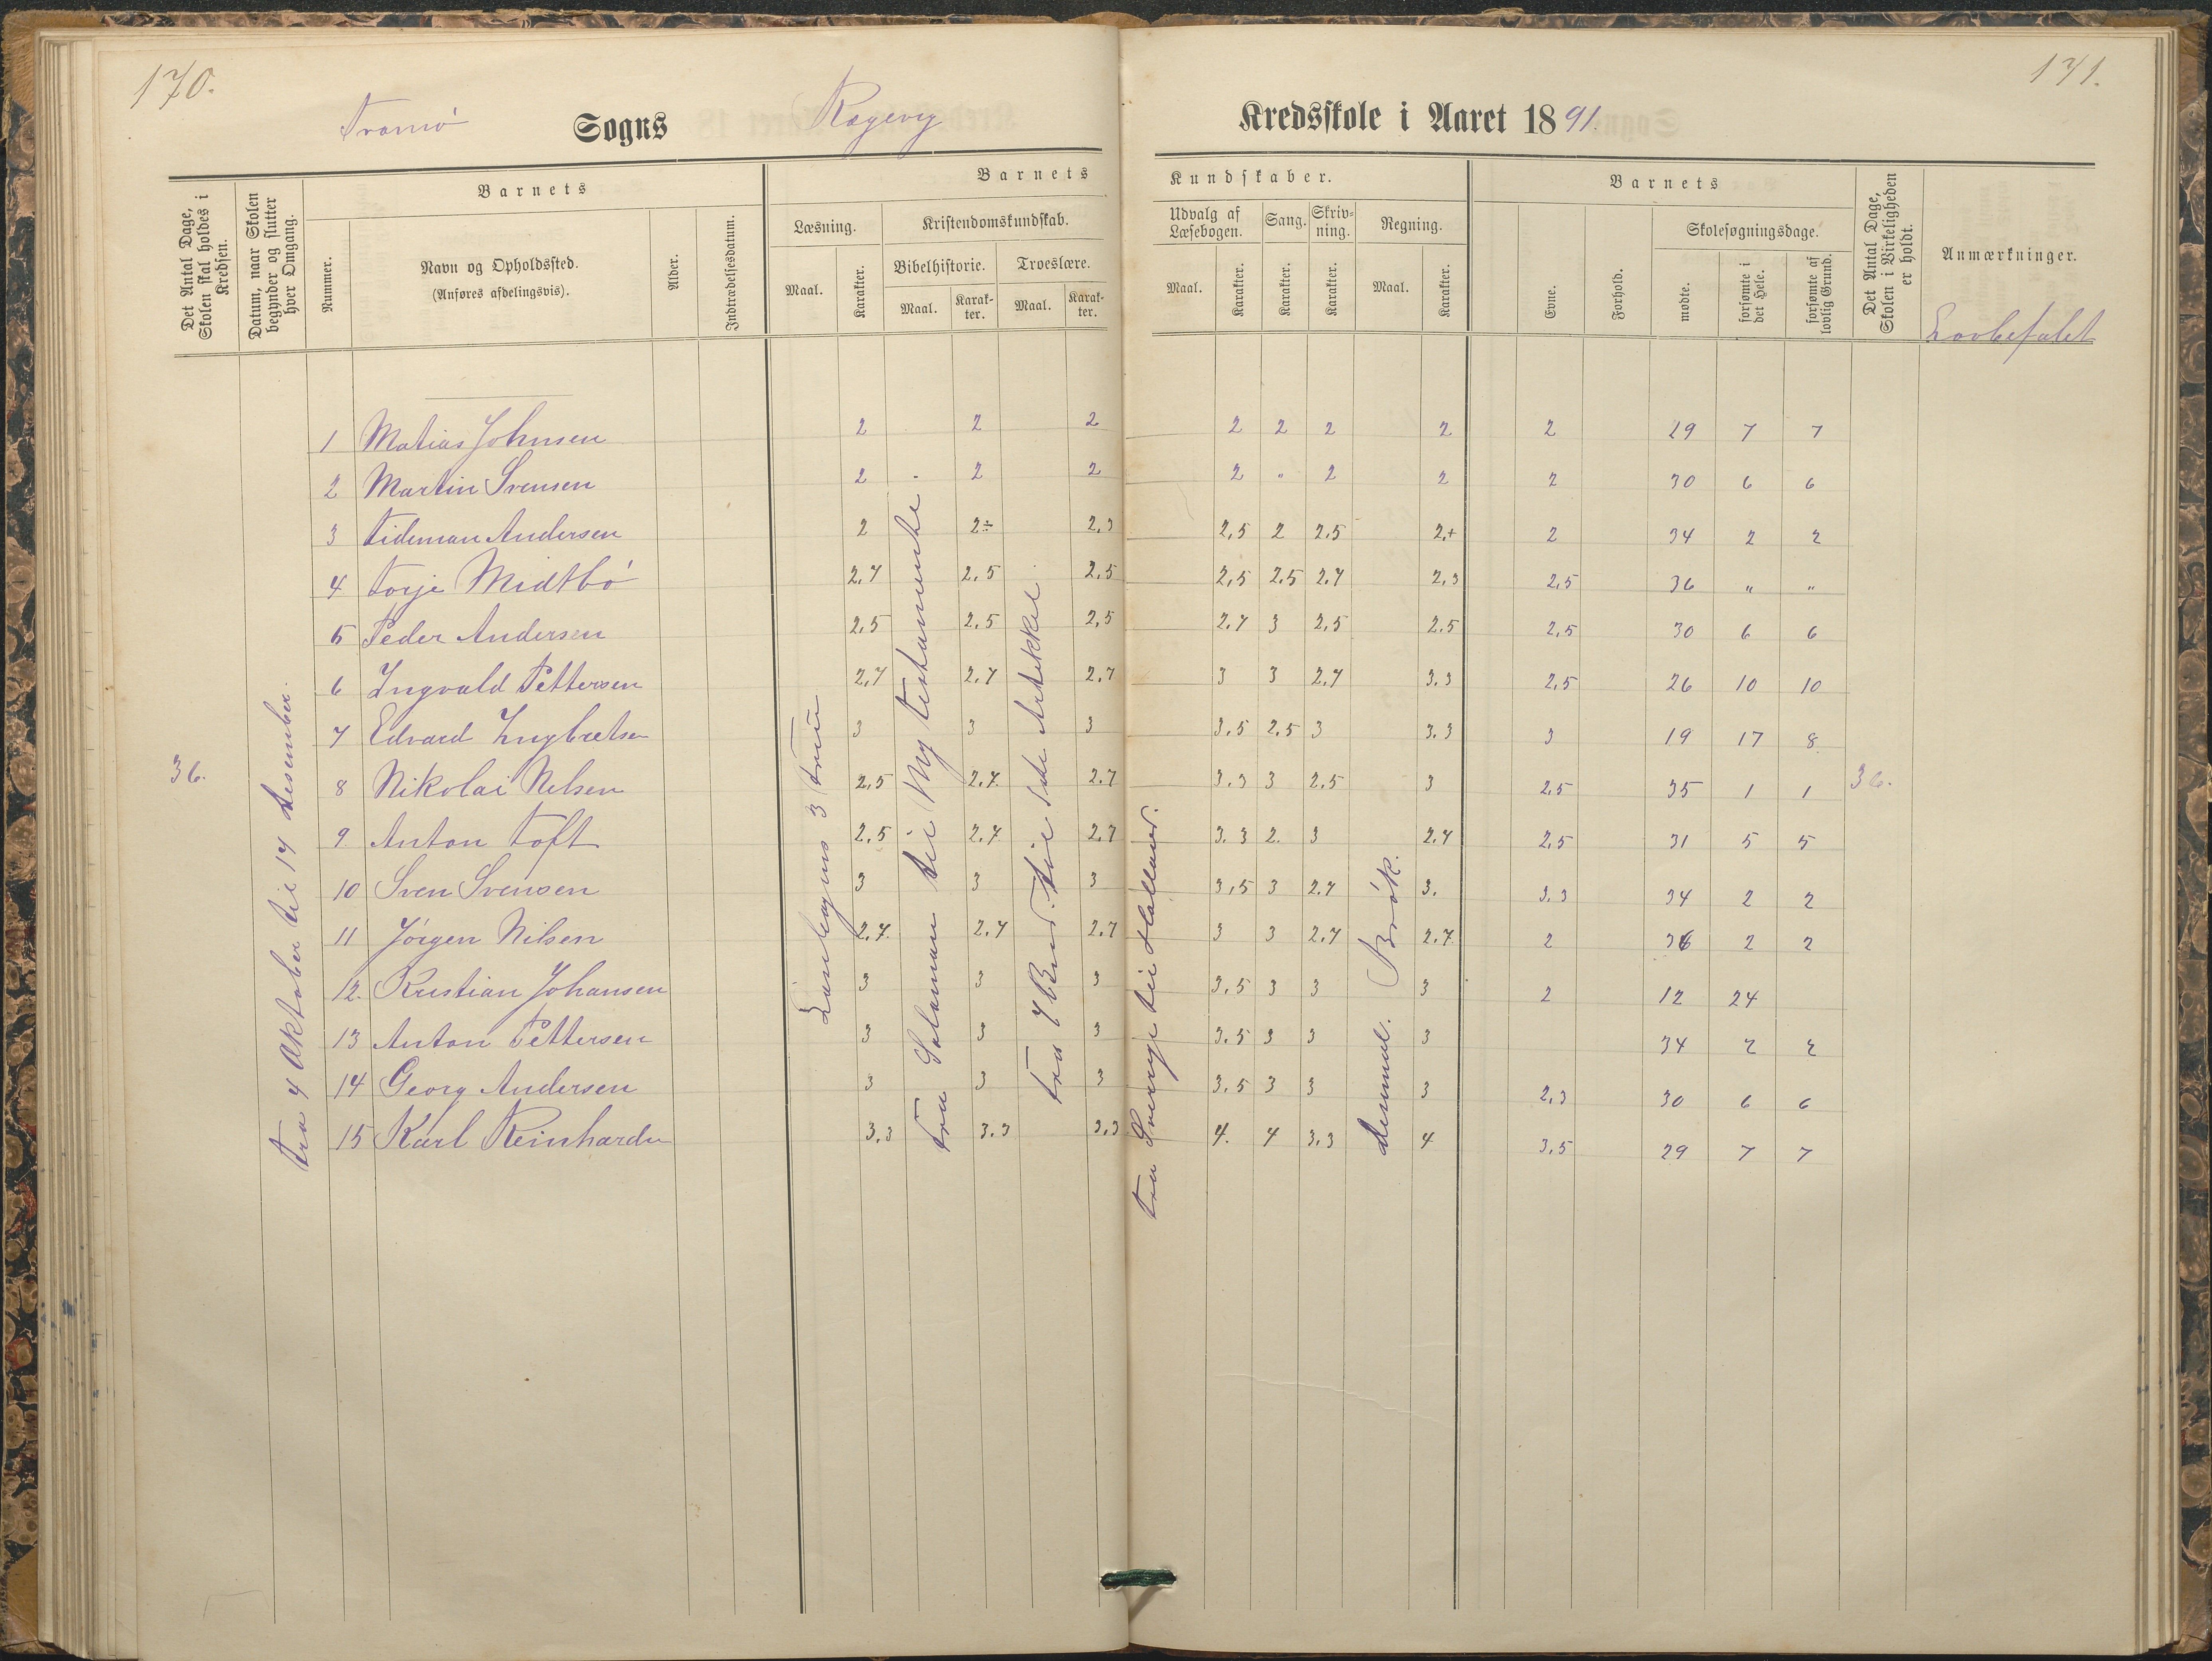 170.
171.
Tromø Sogns Ragevig Kredsskole i Aaret 1891.
Det Antal Dage, Skolen skal holdes i Kredsen.
Datum, naar Skolen begynder og slutter hver Omgang.
Barnets
Nummer.
Navn og Opholdssted.
(Anføres afdelingsvis).
Alder.
Indtrædelsesdatum.
Barnets Kundskaber.
Læsning.
Maal.
Karakter.
Kristendomskundskab.
Bibelhistorie.
Maal.
Karakter.
Troeslære.
Maal.
Karakter.
Udvalg af Læsebogen.
Maal.
Karakter.
Sang.
Karakter.
Skrivning.
Karakter.
Regning.
Maal.
Karakter.
Barnets
Evne.
Forhold.
Skolesøgningsdage.
mødte.
forsømte i det Hele.
forsømte af lovlig Grund.
Det Antal Dage, Skolen i Virkeligheden er holdt.
Anmærkninger.
Lovbefalet
1 Matias Johnsen 2 2 2 2 2 2 2 2 29 7 7
2 Martin Svensen 2 2 2 2 " 2 2 2 30 6 6
3 Tideman Andersen 2 2÷ 2,3 2,5 2 2,5 2,+ 2 34 2 2
4 Torje Midtbö 2,7 2,5 2,5 2,5 2,5 2,7 2,3 2,5 36 " "
5 Peder Andersen 2,5 2,5 2,5 2,7 3 2,5 2.5 2,5 30 6 6
6 Ingvald Pettersen 2,7 2,7 2,7 3 3 2,7 3.3 2,5 26 10 10
7 Edvard Ingbretsen 3 3 3 3,5 2,5 3 3.3 3 19 17 8
8 Nikolai Nelsen 2,5 2,7. 2.7 3.3 3 2,5 3 2,5 35 1 1
9 Anton Toft 2,5 2,7. 2,7 3.3 2. 3 2,7 2,5 31 5 5
10 Sven Svensen 3 3 3 3,5 3 2,7 3. 3.3 34 2 2
11 Jörgen Nilsen 2,7. 2,7 2,7 3 3 2,7 2,7. 2 36 2 2
12. Kristian Johansen 3 3 3 3,5 3 3 3 2 12 24
13 Anton Pettersen 3 3 3 3.5 3 3 3 34 2 2
14 Georg Andersen 3 3 3 3.5 3 3 3 2,3 30 6 6
15 Karl Reinhardn 3,3 3.3 3,3 4. 4 3,3 4 3,5 29 7 7
36.
Fra 4 Oktober til 14 desember.
Læsebogens 3 trin
Fra Saloman til Ny testamente
Fra 7 Bud. til 1ste Artikkel.
Fra Sverige til Holland.
desimal. Brök.
36.